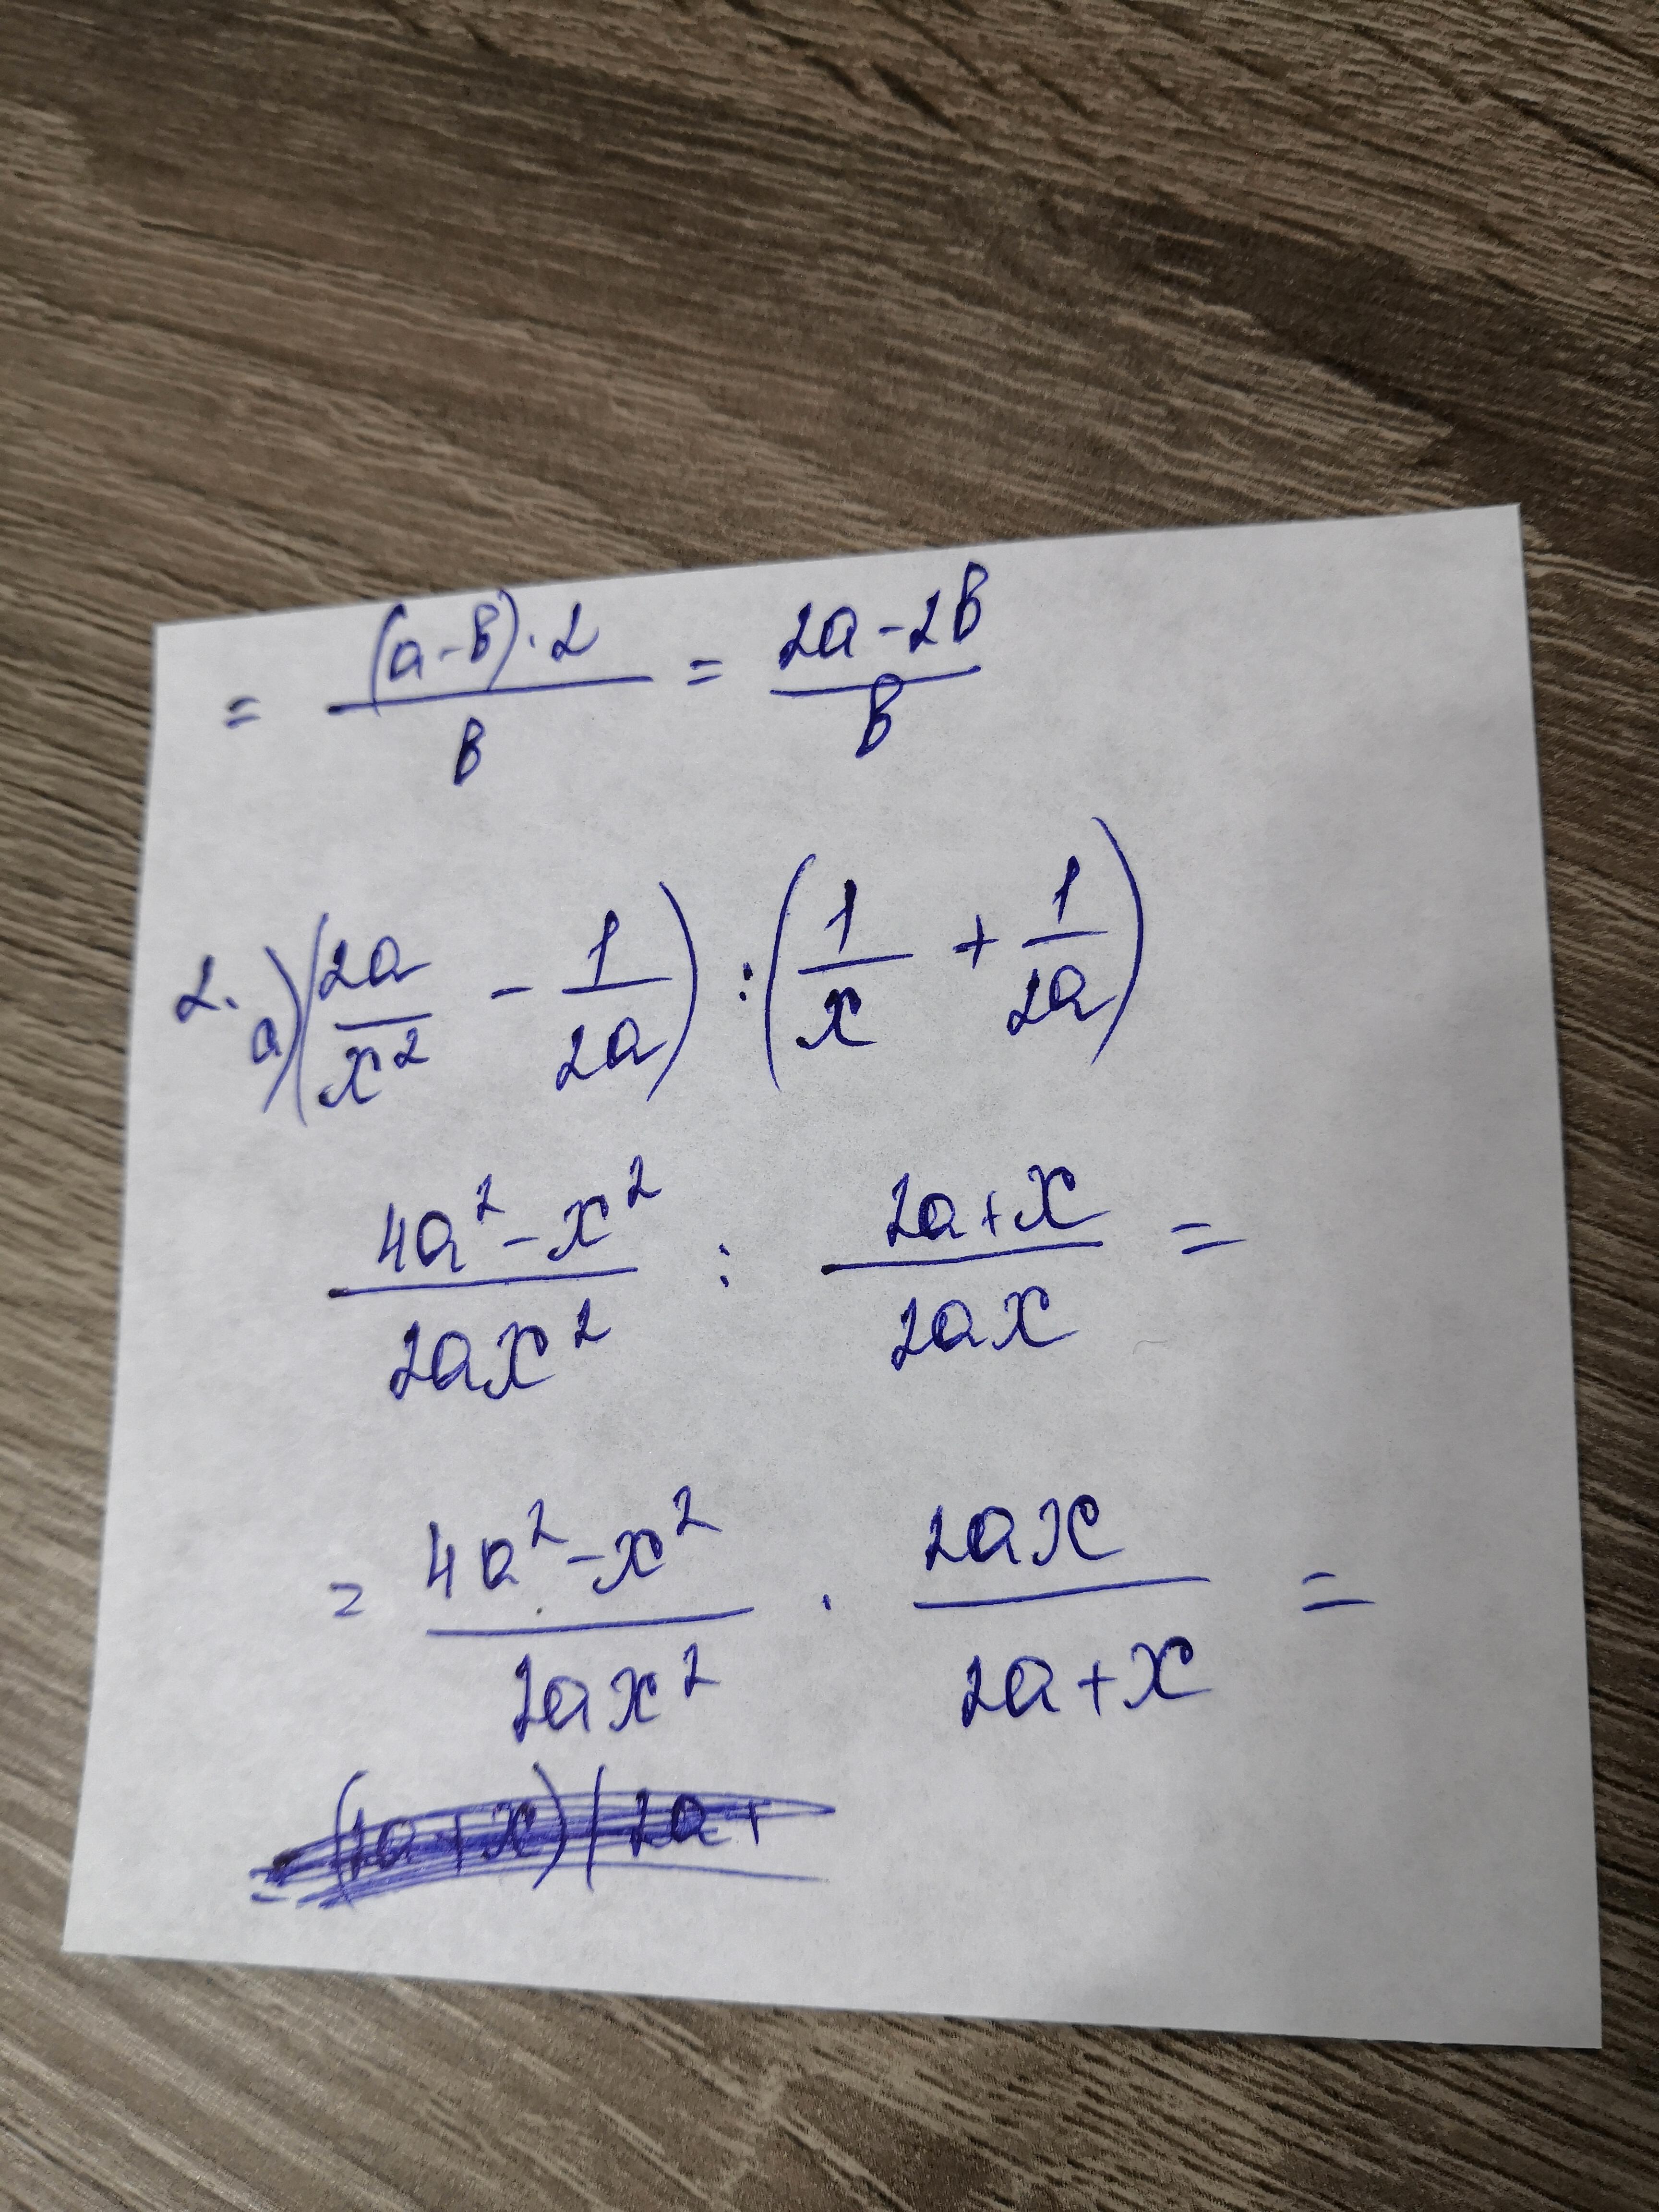 = (a-b)·2 / b = 2a-2b / b
2. a) (2a/x² - 1/2a) : (1/x + 1/2a)
4a²-x² / 2ax² : 2a+x / 2ax =
= 4a²-x² / 2ax² · 2ax / 2a+x =
(2a+x)(2a+